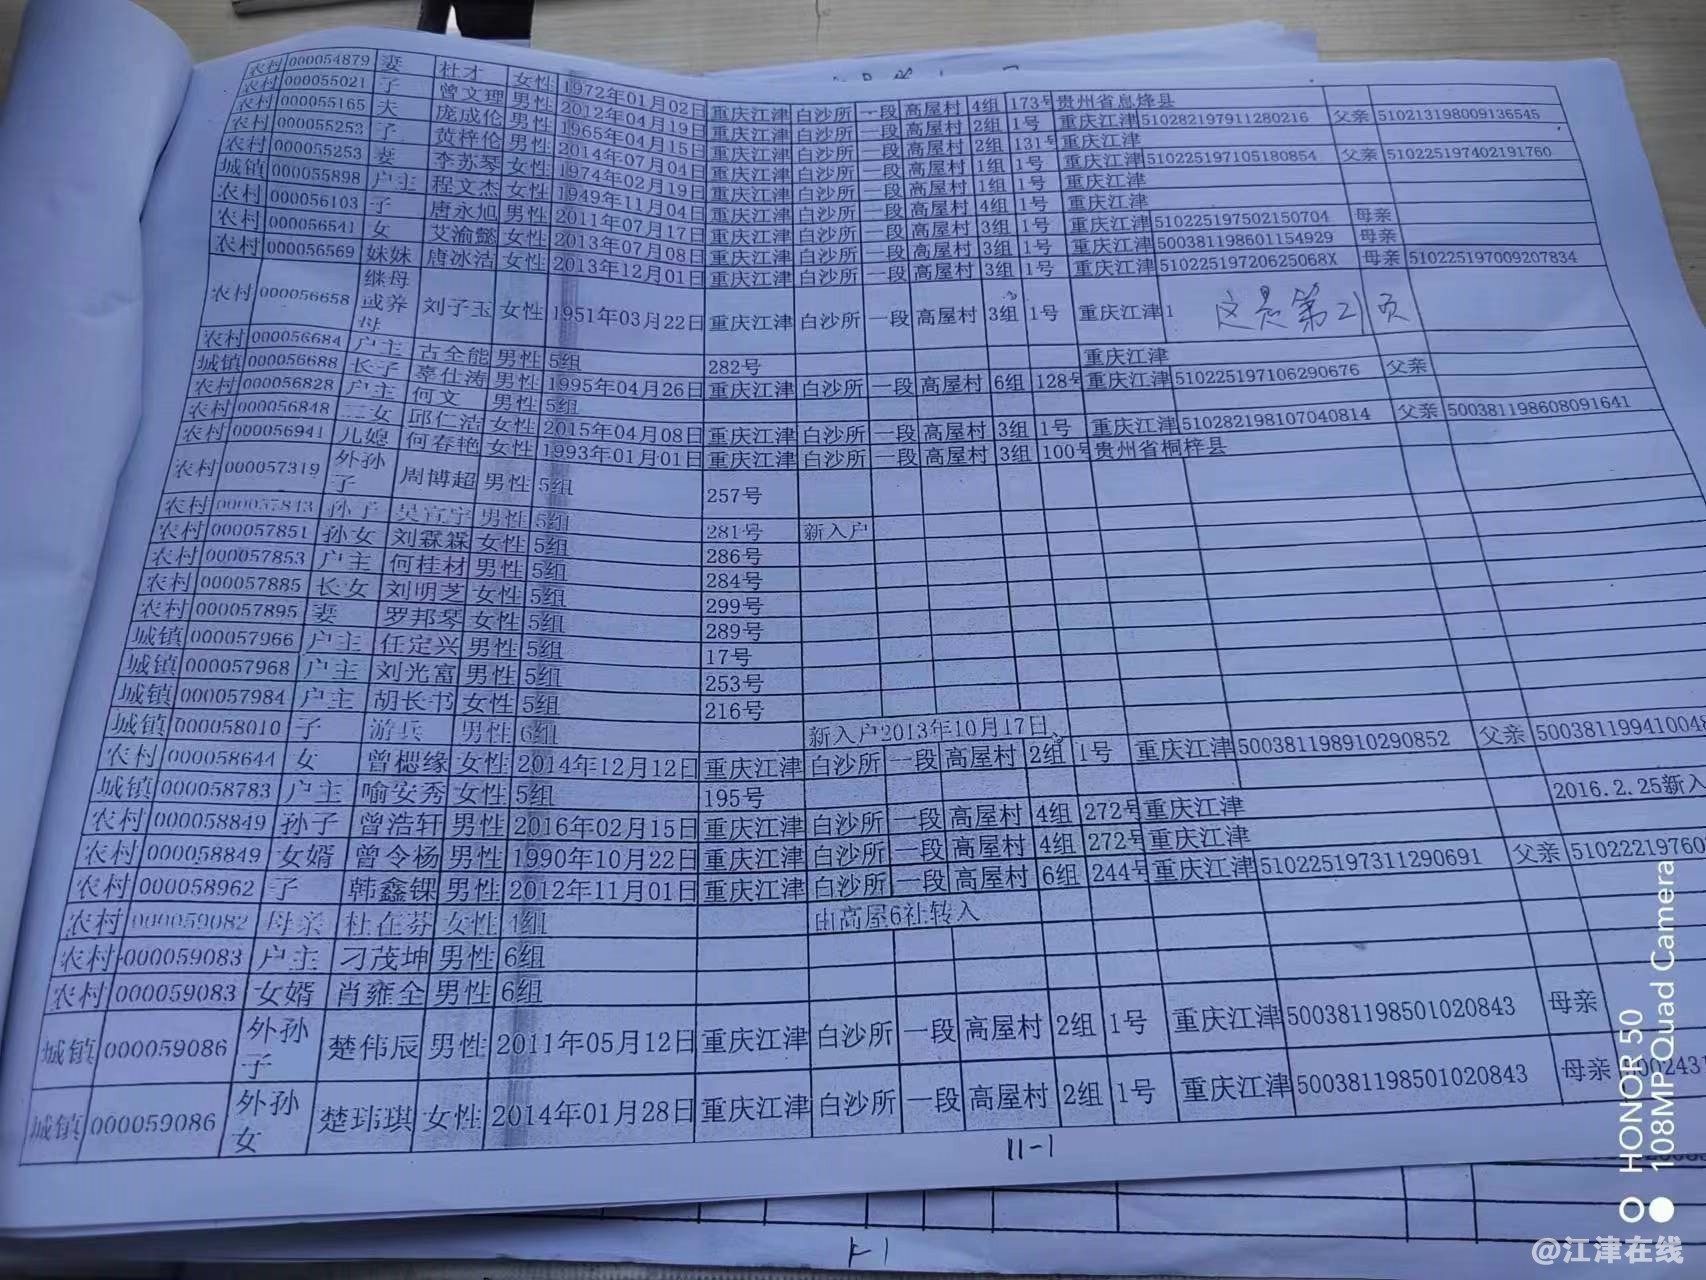 农村 000054879 妻 杜才 女性 1972年01月02日 重庆江津 白沙所 一段 高屋村 4组 173号 贵州省息烽县
农村 000055021 子 曾文理 男性 2012年04月19日 重庆江津 白沙所 一段 高屋村 2组 1号 重庆江津 510282197911280216 父亲 510213198009136545
农村 000055165 夫 庞成伦 男性 1965年04月15日 重庆江津 白沙所 一段 高屋村 2组 131号 重庆江津
农村 000055253 子 贺梓伦 男性 2014年07月04日 重庆江津 白沙所 一段 高屋村 1组 1号 重庆江津 510225197105180854 父亲 510225197402191760
农村 000055253 妻 李苏琴 女性 1974年02月19日 重庆江津 白沙所 一段 高屋村 1组 1号 重庆江津
城镇 000055898 户主 程文杰 女性 1949年11月04日 重庆江津 白沙所 一段 高屋村 4组 1号 重庆江津
农村 000056103 子 唐永旭 男性 2011年07月17日 重庆江津 白沙所 一段 高屋村 3组 1号 重庆江津 510225197502150704 母亲
农村 000056541 女 艾渝懿 女性 2013年07月08日 重庆江津 白沙所 一段 高屋村 3组 1号 重庆江津 500381198601154929 母亲
农村 000056569 妹妹 唐冰洁 女性 2013年12月01日 重庆江津 白沙所 一段 高屋村 3组 1号 重庆江津 51022519720625068X 母亲 510225197009207834
农村 000056658 继母或养母 刘子玉 女性 1951年03月22日 重庆江津 白沙所 一段 高屋村 3组 1号 重庆江津 1 这是第21页
农村 000056684 户主 古全能 男性 5组 282号 重庆江津
城镇 000056688 长子 辜仕涛 男性 1995年04月26日 重庆江津 白沙所 一段 高屋村 6组 128号 重庆江津 510225197106290676 父亲
农村 000056828 户主 何文 男性 5组
农村 000056848 二女 邱仁洁 女性 2015年04月08日 重庆江津 白沙所 一段 高屋村 3组 1号 重庆江津 510282198107040814 父亲 500381198608091641
农村 000056941 儿媳 何春艳 女性 1993年01月01日 重庆江津 白沙所 一段 高屋村 3组 100号 贵州省桐梓县
农村 000057319 外孙子 周博超 男性 5组 257号
农村 000057843 孙子 吴宵宇 男性 5组 281号 新入户
农村 000057851 孙女 刘霖霖 女性 5组 286号
农村 000057853 户主 何桂材 男性 5组 284号
农村 000057885 长女 刘明芝 女性 5组 299号
农村 000057895 妻 罗邦琴 女性 5组 289号
城镇 000057966 户主 任定兴 男性 5组 17号
城镇 000057968 户主 刘光富 男性 5组 253号
城镇 000057984 户主 胡长书 女性 5组 216号
城镇 000058010 子 游兵 男性 6组 新入户2013年10月17日
农村 000058644 女 曾楒缘 女性 2014年12月12日 重庆江津 白沙所 一段 高屋村 2组 1号 重庆江津 500381198910290852 父亲 500381199410048
城镇 000058783 户主 喻安秀 女性 5组 195号
农村 000058849 孙子 曾浩轩 男性 2016年02月15日 重庆江津 白沙所 一段 高屋村 4组 272号 重庆江津 2016.2.25新入
农村 000058849 女婿 曾令杨 男性 1990年10月22日 重庆江津 白沙所 一段 高屋村 4组 272号 重庆江津
农村 000058962 子 韩鑫锞 男性 2012年11月01日 重庆江津 白沙所 一段 高屋村 6组 244号 重庆江津 510225197311290691 父亲 5102221976
农村 000059082 母亲 杜在芬 女性 4组 由高屋6社转入
农村 000059083 户主 刁茂坤 男性 6组
农村 000059083 女婿 肖雍全 男性 6组
城镇 000059086 外孙子 楚伟辰 男性 2011年05月12日 重庆江津 白沙所 一段 高屋村 2组 1号 重庆江津 500381198501020843 母亲
城镇 000059086 外孙女 楚玮琪 女性 2014年01月28日 重庆江津 白沙所 一段 高屋村 2组 1号 重庆江津 500381198501020843 母亲
11-1
HONOR 50
108MP Quad Camera
@江津在线